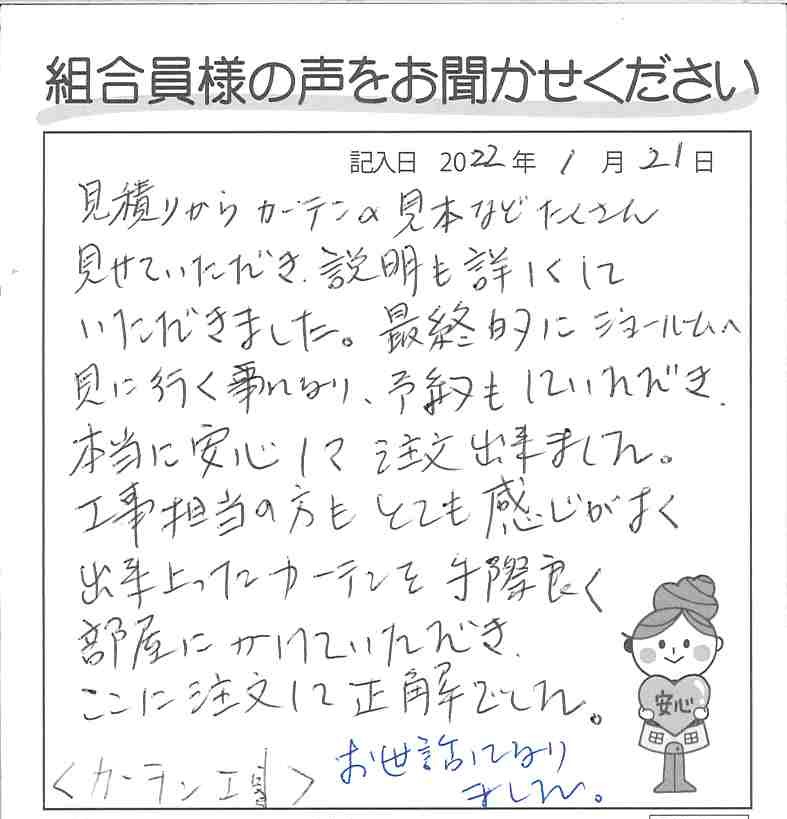 組合員様の声をお聞かせください
記入日 2022年 1月21日
見積りからカーテンの見本などたくさん
見せていただき、説明も詳しくして
いただきました。最終的にショールームへ
見に行く事になり、予約もしていただき、
本当に安心して注文出来ました。
工事担当の方もとても感じがよく
出来上ったカーテンを手際良く
部屋にかけていただき、
ここに注文して正解でした。
安心
<カーテン工事>
お世話になり
ました。